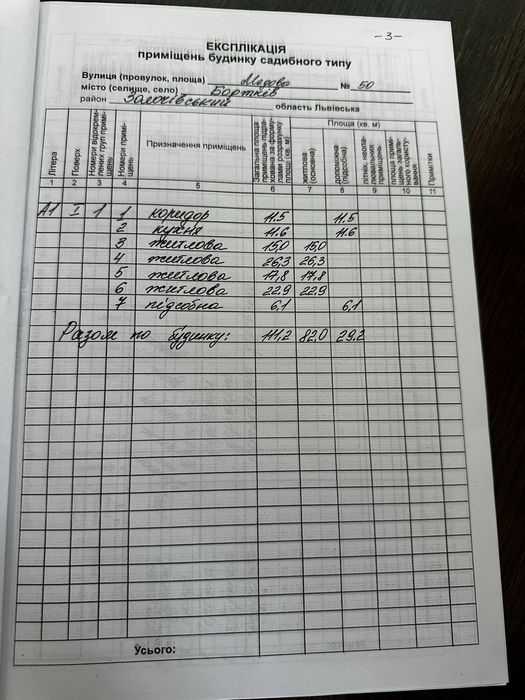 -3-
ЕКСПЛІКАЦІЯ
приміщень будинку садибного типу
Вулиця (провулок, площа) Медова № 50
місто (селище, село) Бортків
район Золочівський область Львівська
Літера
Поверх
Номери відокремлених груп приміщень
Номери приміщень
Призначення приміщень
Загальна площа приміщень підрахована за формулами розрахунку площі (кв. м)
Площа (кв. м)
житлова (основна)
допоміжна (підсобна)
літніх, неопалювальних приміщень
площа приміщень загального користування
Примітки
1 2 3 4 5 6 7 8 9 10 11
А1 I 1 1 коридор 11.5 11.5
2 кухня 11.6 11.6
3 житлова 15,0 15,0
4 житлова 26,3 26,3
5 житлова 17,8 17,8
6 житлова 22.9 22.9
7 підсобна 6,1 6,1
Разом по будинку: 111,2 82,0 29.2
Усього: